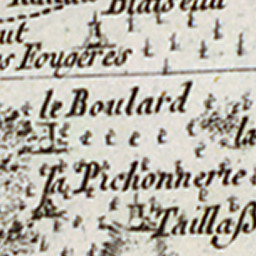 ut
s Fougeres
le Boulard
la
la Pichonnerie
Taillass